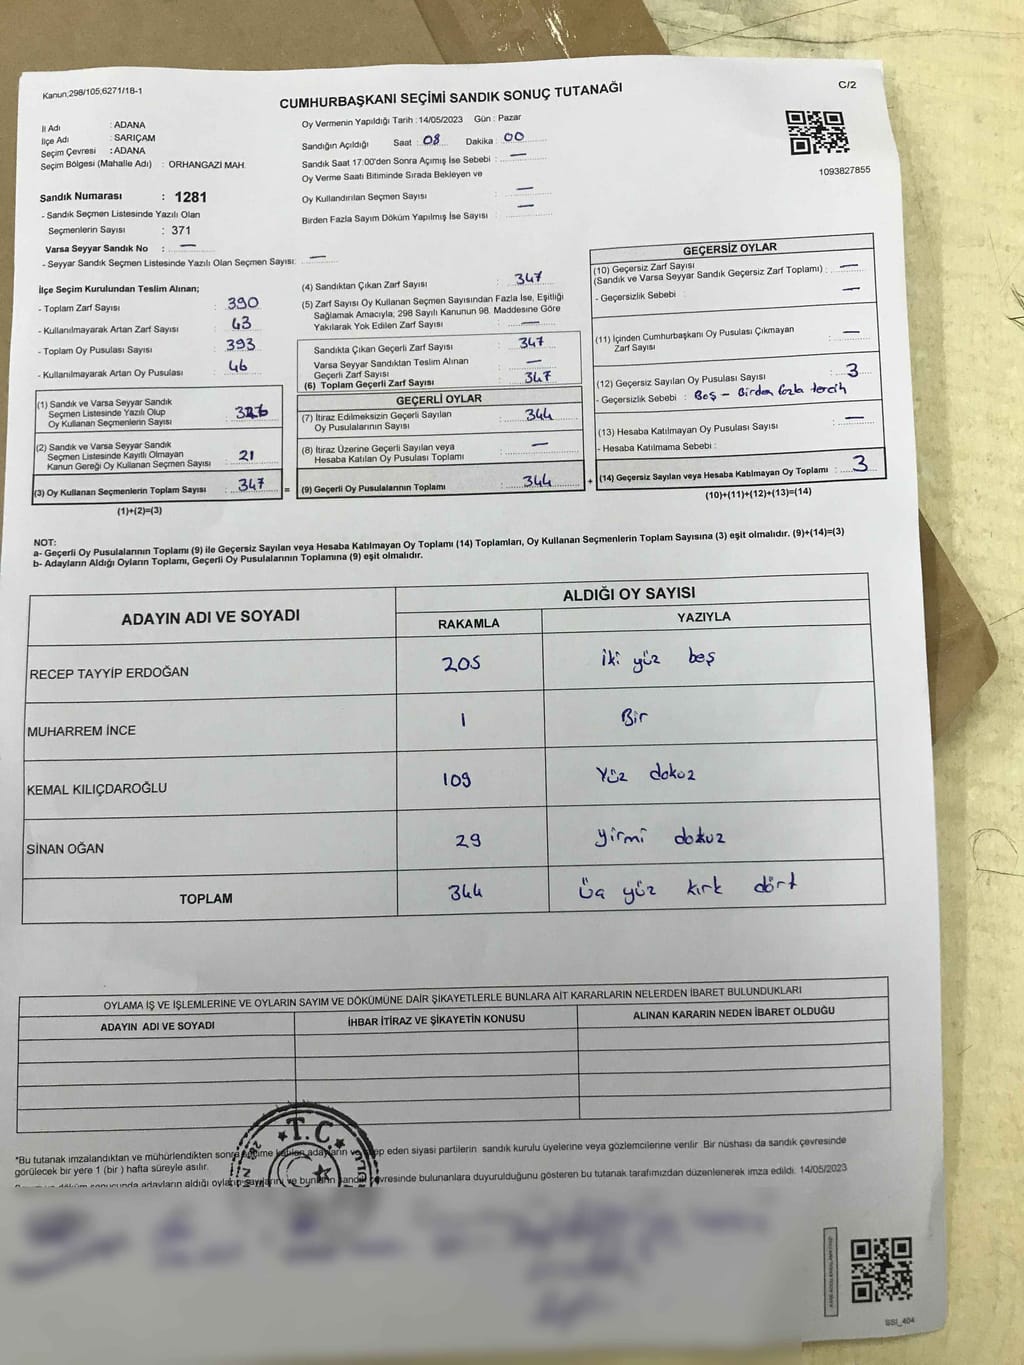 Kanun;298/105;6271/18-1
CUMHURBAŞKANI SEÇİMİ SANDIK SONUÇ TUTANAĞI
C/2
İl Adı : ADANA
İlçe Adı : SARIÇAM
Seçim Çevresi : ADANA
Seçim Bölgesi (Mahalle Adı) : ORHANGAZİ MAH.
Oy Vermenin Yapıldığı Tarih :14/05/2023 Gün : Pazar
Sandığın Açıldığı Saat : 08 Dakika : 00
Sandık Saat 17:00'den Sonra Açımış İse Sebebi : —
Oy Verme Saati Bitiminde Sırada Bekleyen ve
Oy Kullandırılan Seçmen Sayısı : —
Birden Fazla Sayım Döküm Yapılmış İse Sayısı : —
1093827855
Sandık Numarası : 1281
- Sandık Seçmen Listesinde Yazılı Olan
Seçmenlerin Sayısı : 371
Varsa Seyyar Sandık No : —
- Seyyar Sandık Seçmen Listesinde Yazılı Olan Seçmen Sayısı: —
İlçe Seçim Kurulundan Teslim Alınan;
- Toplam Zarf Sayısı : 390
- Kullanılmayarak Artan Zarf Sayısı : 43
- Toplam Oy Pusulası Sayısı : 393
- Kullanılmayarak Artan Oy Pusulası : 46
(1) Sandık ve Varsa Seyyar Sandık
Seçmen Listesinde Yazılı Olup
Oy Kullanan Seçmenlerin Sayısı : 326
(2) Sandık ve Varsa Seyyar Sandık
Seçmen Listesinde Kayıtlı Olmayan
Kanun Gereği Oy Kullanan Seçmen Sayısı : 21
(3) Oy Kullanan Seçmenlerin Toplam Sayısı : 347 =
(1)+(2)=(3)
(4) Sandıktan Çıkan Zarf Sayısı : 347
(5) Zarf Sayısı Oy Kullanan Seçmen Sayısından Fazla İse, Eşitliği
Sağlamak Amacıyla, 298 Sayılı Kanunun 98. Maddesine Göre
Yakılarak Yok Edilen Zarf Sayısı : —
Sandıkta Çıkan Geçerli Zarf Sayısı : 347
Varsa Seyyar Sandıktan Teslim Alınan
Geçerli Zarf Sayısı : —
(6) Toplam Geçerli Zarf Sayısı : 347
GEÇERLİ OYLAR
(7) İtiraz Edilmeksizin Geçerli Sayılan
Oy Pusulasının Sayısı : 344
(8) İtiraz Üzerine Geçerli Sayılan veya
Hesaba Katılan Oy Pusulası Toplamı : —
(9) Geçerli Oy Pusulalarının Toplamı : 344 +
GEÇERSİZ OYLAR
(10) Geçersiz Zarf Sayısı
(Sandık ve Varsa Seyyar Sandık Geçersiz Zarf Toplamı) : —
- Geçersizlik Sebebi : —
(11) İçinden Cumhurbaşkanı Oy Pusulası Çıkmayan
Zarf Sayısı : —
(12) Geçersiz Sayılan Oy Pusulası Sayısı : 3
- Geçersizlik Sebebi : Boş - Birden fazla tercih
(13) Hesaba Katılmayan Oy Pusulası Sayısı : —
- Hesaba Katılmama Sebebi :
(14) Geçersiz Sayılan veya Hesaba Katılmayan Oy Toplamı : 3
(10)+(11)+(12)+(13)=(14)
NOT:
a- Geçerli Oy Pusulalarının Toplamı (9) ile Geçersiz Sayılan veya Hesaba Katılmayan Oy Toplamı (14) Toplamları, Oy Kullanan Seçmenlerin Toplam Sayısına (3) eşit olmalıdır. (9)+(14)=(3)
b- Adayların Aldığı Oyların Toplamı, Geçerli Oy Pusulalarının Toplamına (9) eşit olmalıdır.
ADAYIN ADI VE SOYADI
ALDIĞI OY SAYISI
RAKAMLA YAZIYLA
RECEP TAYYİP ERDOĞAN 205 iki yüz beş
MUHARREM İNCE 1 Bir
KEMAL KILIÇDAROĞLU 109 Yüz dokuz
SİNAN OĞAN 29 yirmi dokuz
TOPLAM 344 üç yüz kırk dört
OYLAMA İŞ VE İŞLEMLERİNE VE OYLARIN SAYIM VE DÖKÜMÜNE DAİR ŞİKAYETLERLE BUNLARA AİT KARARLARIN NELERDEN İBARET BULUNDUKLARI
ADAYIN ADI VE SOYADI İHBAR İTİRAZ VE ŞİKAYETİN KONUSU ALINAN KARARIN NEDEN İBARET OLDUĞU
T.C.
*Bu tutanak imzalandıktan ve mühürlendikten sonra seçime katılan adayların ve eden siyasi partilerin sandık kurulu üyelerine veya gözlemcilerine verilir. Bir nüshası da sandık çevresinde
görülecek bir yere 1 (bir ) hafta süreyle asılır.
sonucunda adayların aldığı oyların sayılarını ve bunların sandık çevresinde bulunanlara duyurulduğunu gösteren bu tutanak tarafımızdan düzenlenerek imza edildi. 14/05/2023
SSI_404